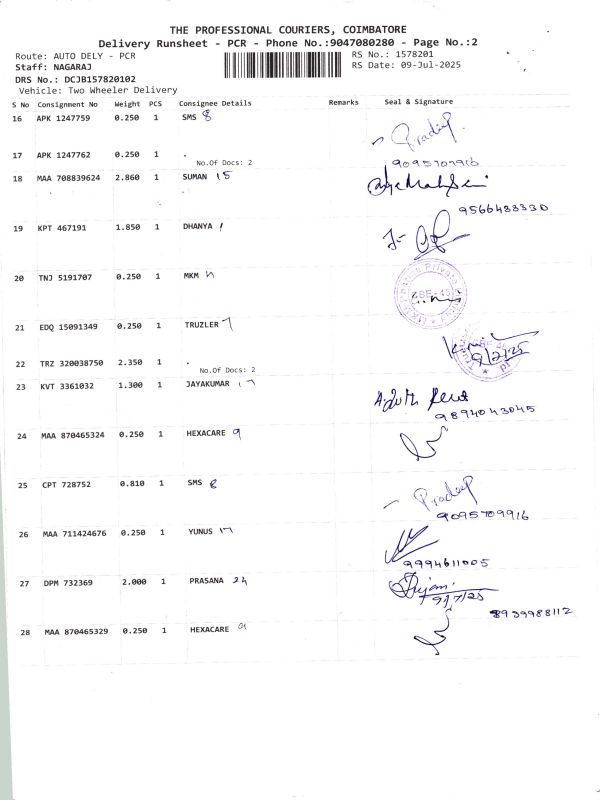 THE PROFESSIONAL COURIERS, COIMBATORE
Delivery Runsheet - PCR - Phone No.:9047080280 - Page No.:2
Route: AUTO DELY - PCR RS No.: 1578201
Staff: NAGARAJ RS Date: 09-Jul-2025
DRS No.: DCJB157820102
Vehicle: Two Wheeler Delivery
S No Consignment No Weight PCS Consignee Details Remarks Seal & Signature
16 APK 1247759 0.250 1 SMS 8 Pradeep
17 APK 1247762 0.250 1 .
No.Of Docs: 2 9095709916
18 MAA 708839624 2.860 1 SUMAN 15
9566483330
19 KPT 467191 1.850 1 DHANYA 1
20 TNJ 5191707 0.250 1 MKM n
21 EDQ 15091349 0.250 1 TRUZLER 7
9/7/25
22 TRZ 320038750 2.350 1 .
No.Of Docs: 2
23 KVT 3361032 1.300 1 JAYAKUMAR 17
9894043045
24 MAA 870465324 0.250 1 HEXACARE 9
25 CPT 728752 0.810 1 SMS 8 Pradeep
9095709916
26 MAA 711424676 0.250 1 YUNUS 17
9994611005
27 DPM 732369 2.000 1 PRASANA 24
9/7/25
8939988112
28 MAA 870465329 0.250 1 HEXACARE 9